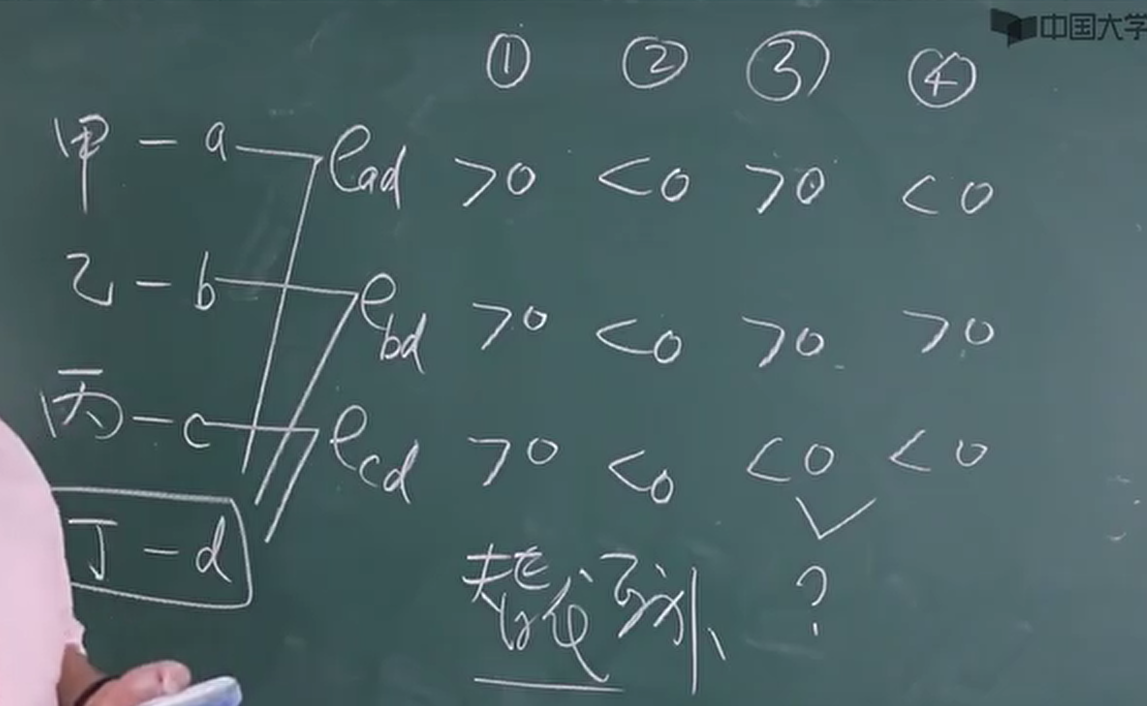 中国大学
① ② ③ ④
甲 — a ead >0 <0 >0 <0
乙 — b ebd >0 <0 >0 >0
丙 — c ecd >0 <0 <0 <0
丁 — d
替
?